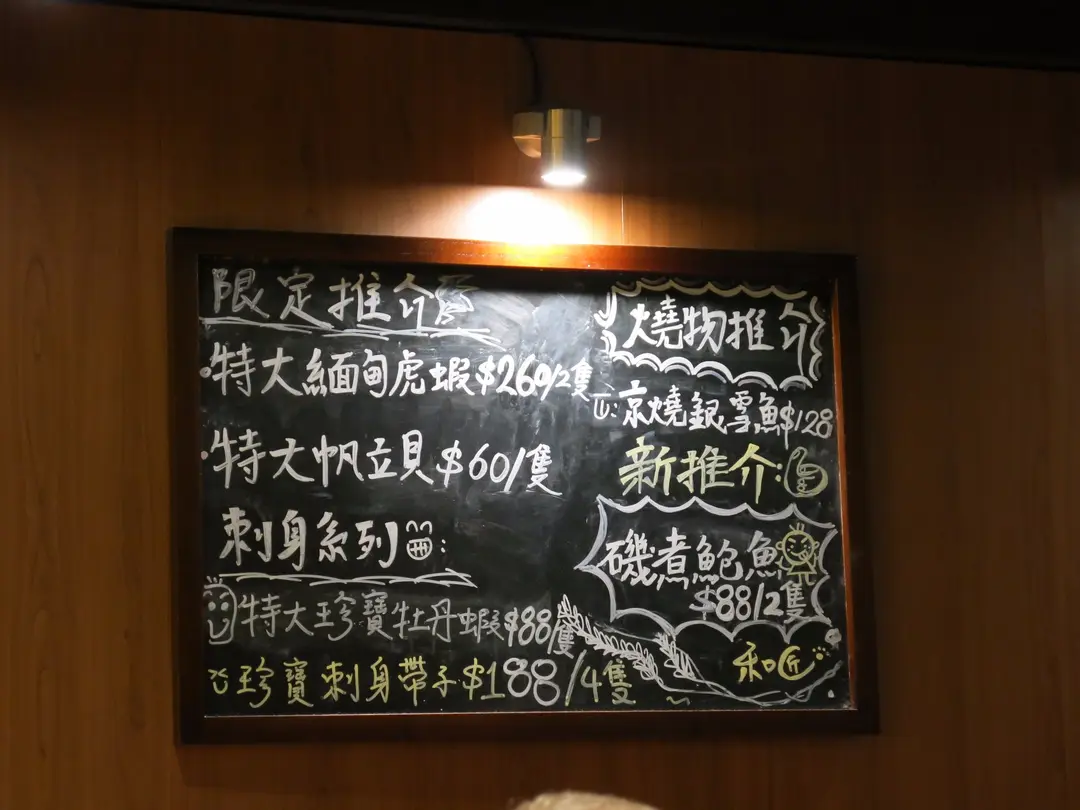 限定推介
特大緬甸虎蝦$260/2隻
特大帆立貝$60/隻
刺身系列:
特大珍寶牡丹蝦$88/隻
珍寶刺身帶子$188/4隻
燒物推介
京燒銀雪魚$128
新推介:
磯煮鮑魚
$88/2隻
和匠